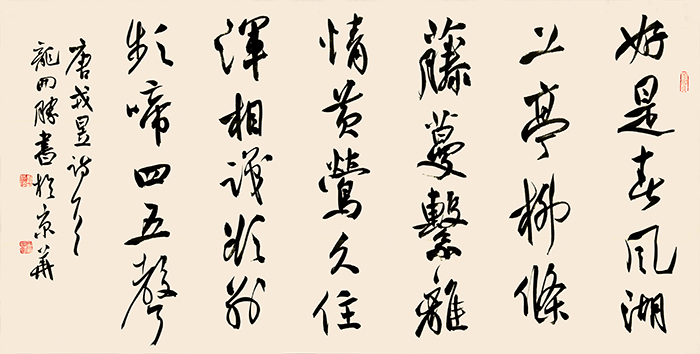 好是春风湖
上亭柳條
藤蔓繫離
情黄鶯久住
渾相識欲别
頻啼四五聲
唐戎昱詩
龍開勝書於京華